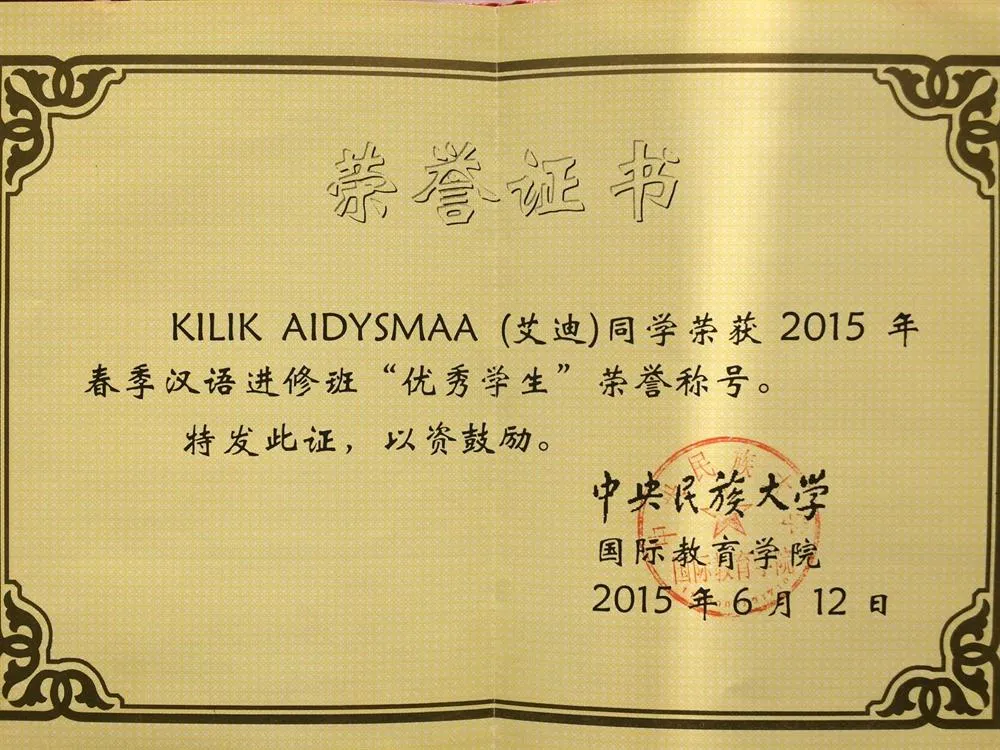 荣誉证书
KILIK AIDYSMAA (艾迪)同学荣获 2015 年
春季汉语进修班“优秀学生”荣誉称号。
特发此证，以资鼓励。
中央民族大学
国际教育学院
2015 年 6 月 12 日
中央民族大学
国际教育学院